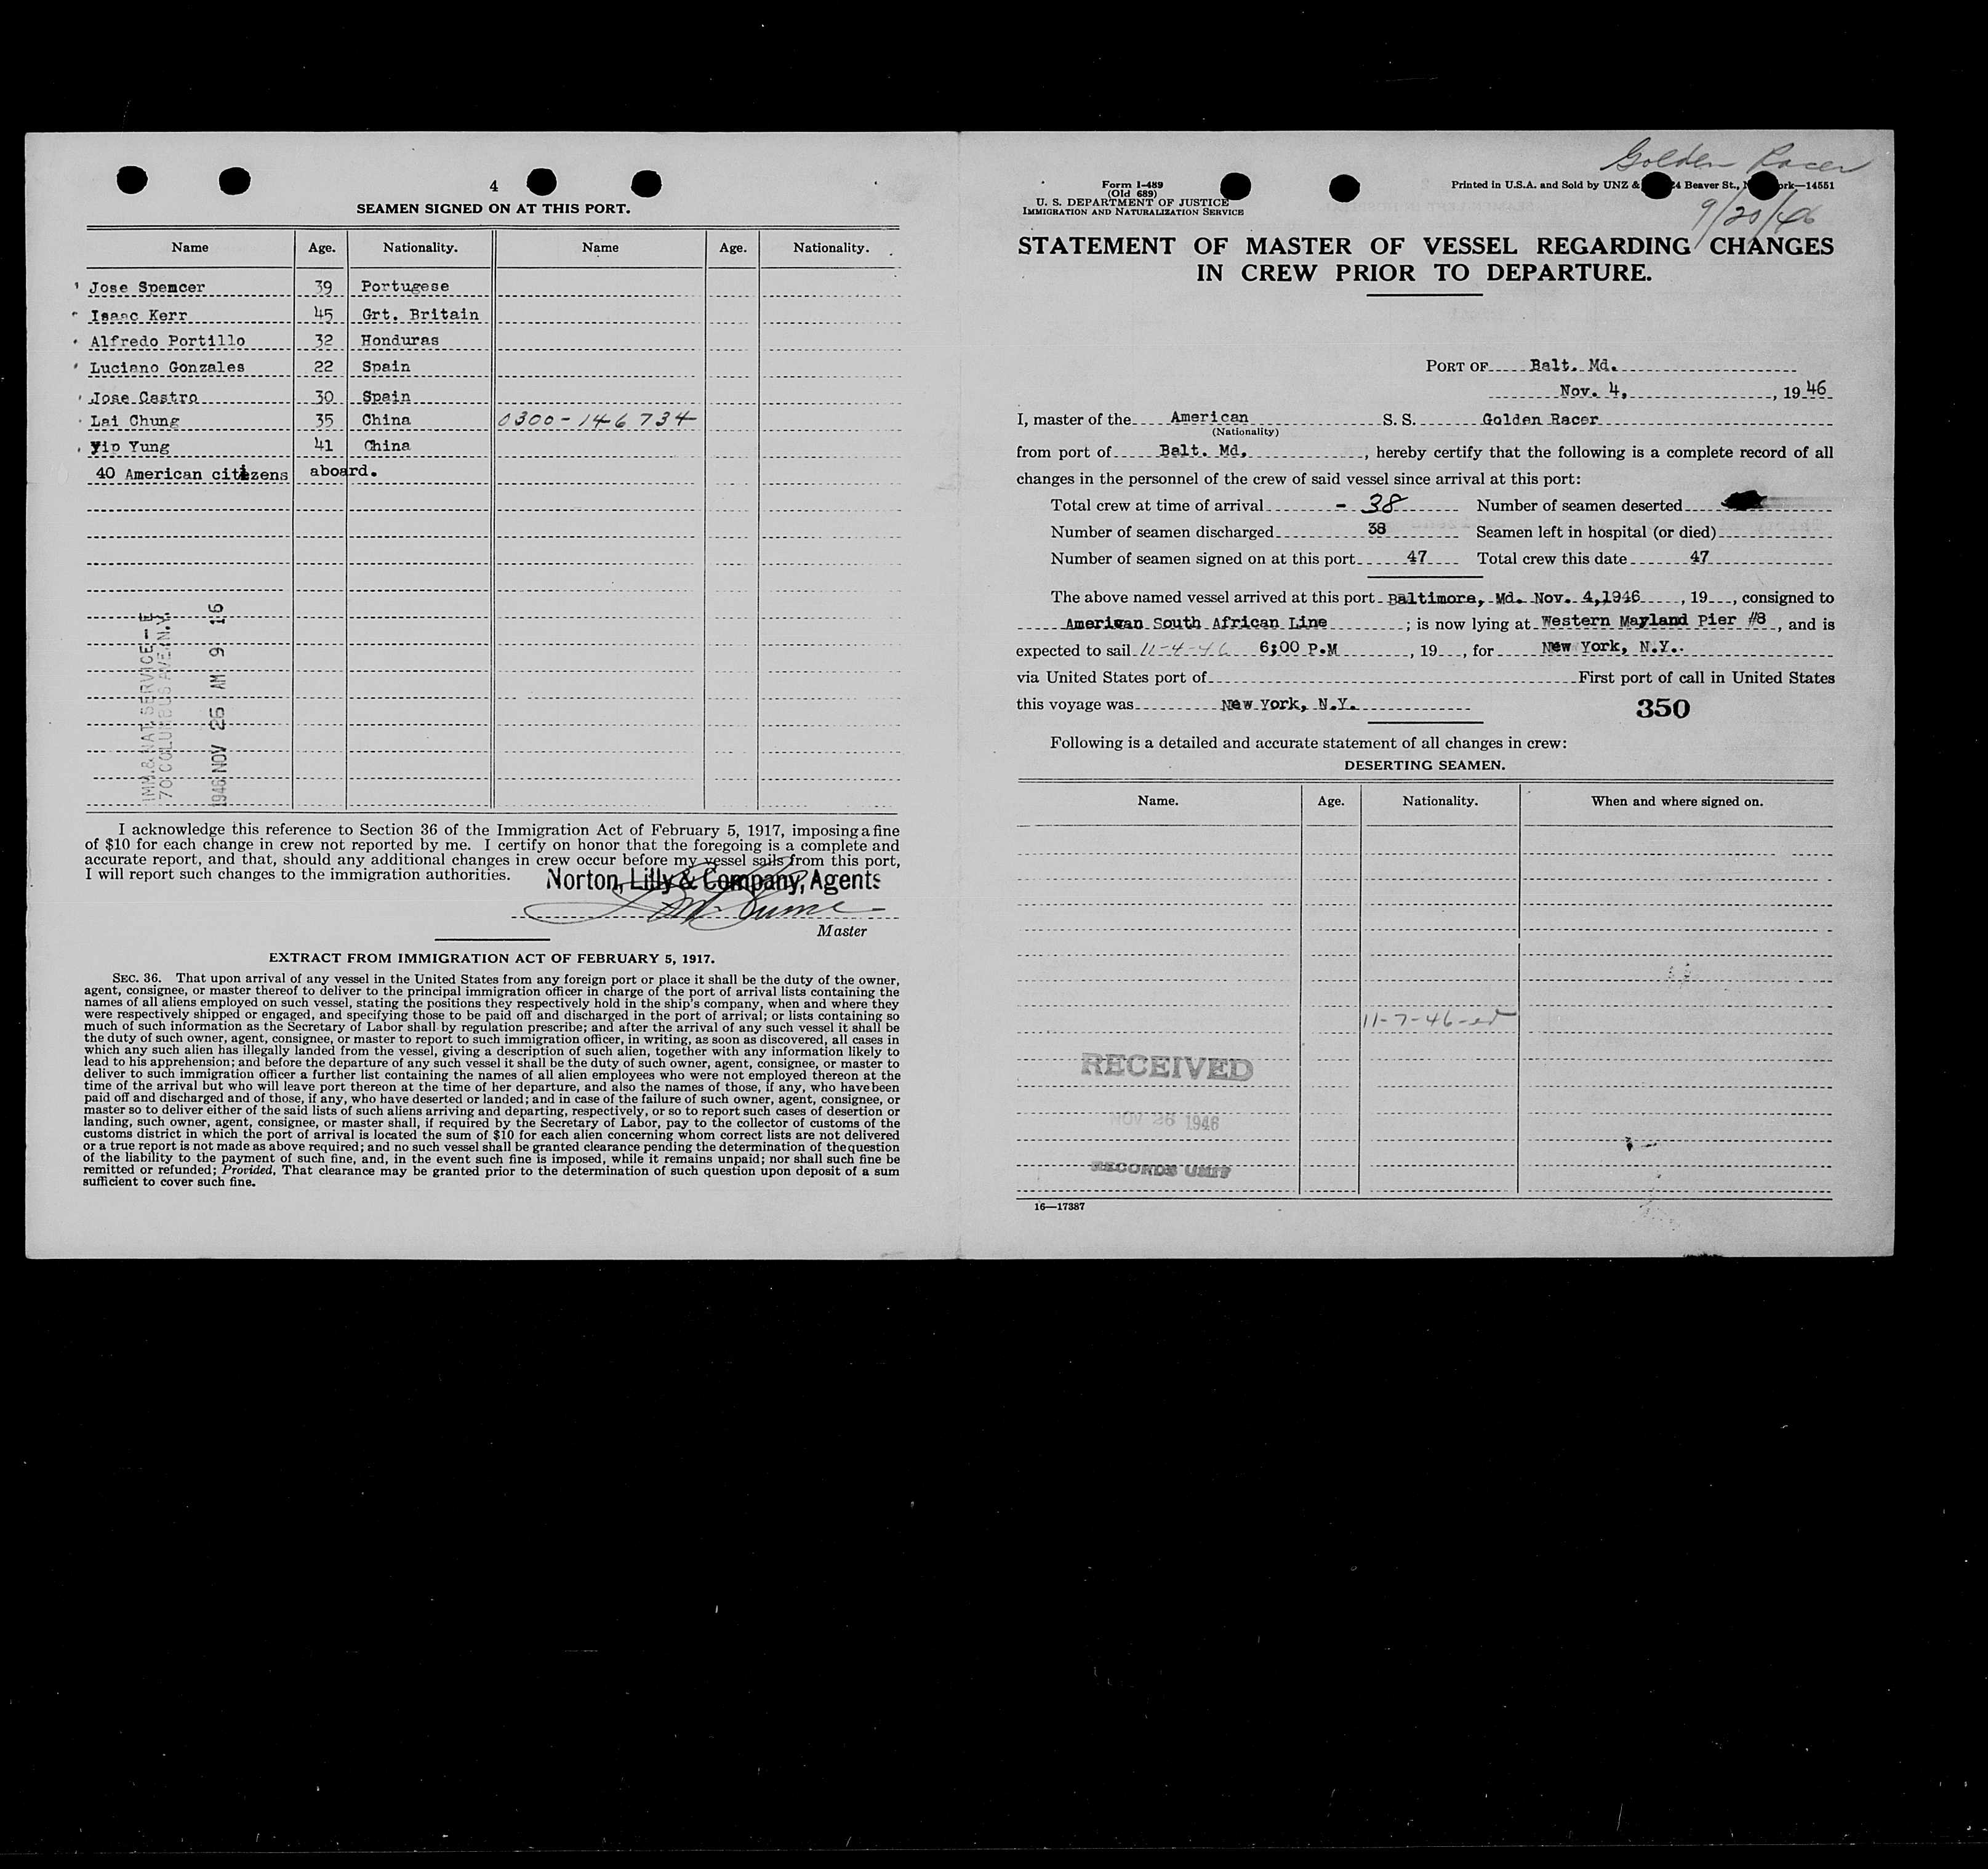 4
SEAMEN SIGNED ON AT THIS PORT.
Name Age. Nationality. Name Age. Nationality.
Jose Spencer 39 Portugese
Isaac Kerr 45 Grt. Britain
Alfredo Portillo 32 Honduras
Luciano Gonzales 22 Spain
Jose Castro 30 Spain
Lai Chung 35 China 0300-146734
Yip Yung 41 China
40 American citizens aboard.
IMM. & NAT. SERVICE-E
70 COLUMBUS AVE. N.Y.
1946 NOV 26 AM 9 16
I acknowledge this reference to Section 36 of the Immigration Act of February 5, 1917, imposing a fine
of $10 for each change in crew not reported by me. I certify on honor that the foregoing is a complete and
accurate report, and that, should any additional changes in crew occur before my vessel sails from this port,
I will report such changes to the immigration authorities.
Norton, Lilly & Company, Agents
Master
EXTRACT FROM IMMIGRATION ACT OF FEBRUARY 5, 1917.
SEC. 36. That upon arrival of any vessel in the United States from any foreign port or place it shall be the duty of the owner,
agent, consignee, or master thereof to deliver to the principal immigration officer in charge of the port of arrival lists containing the
names of all aliens employed on such vessel, stating the positions they respectively hold in the ship's company, when and where they
were respectively shipped or engaged, and specifying those to be paid off and discharged in the port of arrival; or lists containing so
much of such information as the Secretary of Labor shall by regulation prescribe; and after the arrival of any such vessel it shall be
the duty of such owner, agent, consignee, or master to report to such immigration officer, in writing, as soon as discovered, all cases in
which any such alien has illegally landed from the vessel, giving a description of such alien, together with any information likely to
lead to his apprehension; and before the departure of any such vessel it shall be the duty of such owner, agent, consignee, or master to
deliver to such immigration officer a further list containing the names of all alien employees who were not employed thereon at the
time of the arrival but who will leave port thereon at the time of her departure, and also the names of those, if any, who have been
paid off and discharged and of those, if any, who have deserted or landed; and in case of the failure of such owner, agent, consignee, or
master so to deliver either of the said lists of such aliens arriving and departing, respectively, or so to report such cases of desertion or
landing, such owner, agent, consignee, or master shall, if required by the Secretary of Labor, pay to the collector of customs of the
customs district in which the port of arrival is located the sum of $10 for each alien concerning whom correct lists are not delivered
or a true report is not made as above required; and no such vessel shall be granted clearance pending the determination of the question
of the liability to the payment of such fine, and, in the event such fine is imposed, while it remains unpaid; nor shall such fine be
remitted or refunded; Provided, That clearance may be granted prior to the determination of such question upon deposit of a sum
sufficient to cover such fine.
Golden Racer
9/20/46
Form I-489
(Old 689)
U. S. DEPARTMENT OF JUSTICE
IMMIGRATION AND NATURALIZATION SERVICE
Printed in U.S.A. and Sold by UNZ & Beaver St., 14551
STATEMENT OF MASTER OF VESSEL REGARDING CHANGES
IN CREW PRIOR TO DEPARTURE.
PORT OF Balt. Md.
Nov. 4, , 1946
I, master of the American S. S. Golden Racer
(Nationality)
from port of Balt. Md. , hereby certify that the following is a complete record of all
changes in the personnel of the crew of said vessel since arrival at this port:
Total crew at time of arrival - 38 Number of seamen deserted
Number of seamen discharged 38 Seamen left in hospital (or died)
Number of seamen signed on at this port 47 Total crew this date 47
The above named vessel arrived at this port Baltimore, Md. Nov. 4,1946 , 19 , consigned to
American South African Line ; is now lying at Western Mayland Pier #8 , and is
expected to sail 11-4-46 6;00 P.M , 19 , for New York, N.Y..
via United States port of First port of call in United States
this voyage was New York, N.Y.
350
Following is a detailed and accurate statement of all changes in crew:
DESERTING SEAMEN.
Name. Age. Nationality. When and where signed on.
11-7-46-ed
RECEIVED
NOV 26 1946
RECORDS UNIT
16—17387